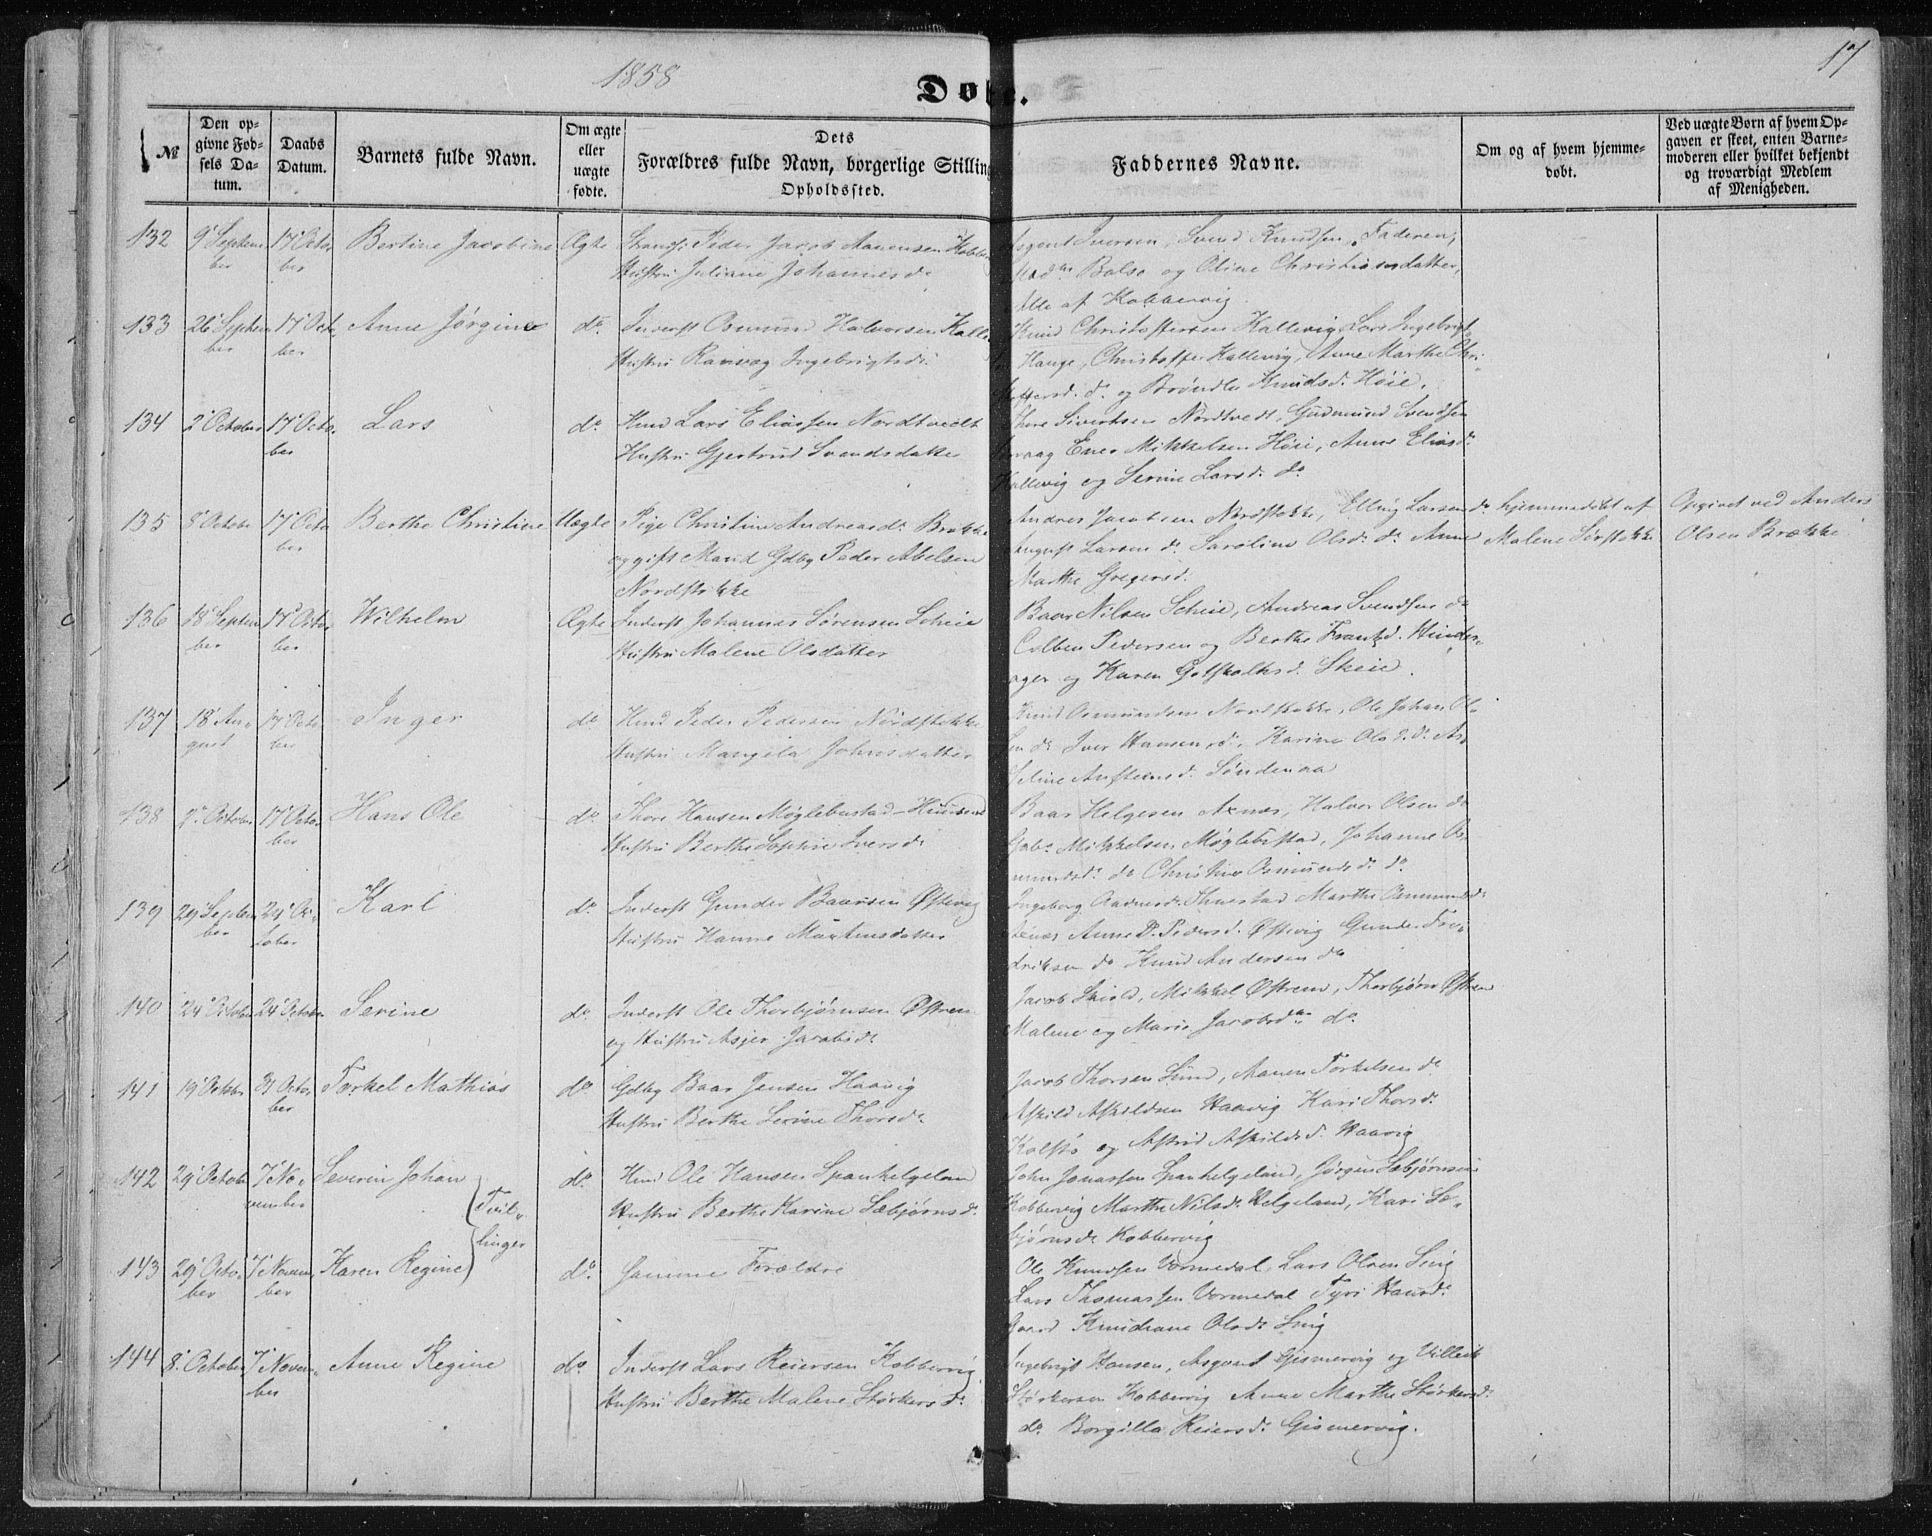 1858
17
Døbe.
№
Den op-
givne Fød-
sels Da-
tum.
Daabs
Datum.
Barnets fulde Navn.
Om ægte
eller
uægte
fødte.
Dets
Forældres fulde Navn, borgerlige Stilling
Opholdssted.
Faddernes Navne.
Om og af hvem hjemme-
døbt.
Ved uægte Børn af hvem Op-
gaven er skeet, enten Barne-
moderen eller hvilket bekjendt
og troværdigt Medlem
af Menigheden.
132 9' Septem 17' Octo Bertine Jacobine Ægte Strands. Peder Jacob Aanensen Kobber
ber ber Hustru Juliane Johannesd.
Asgaut Iversen, Svend Knudsen, Faderen,
Balso og Oline Christiansdatter,
Alle af Kobbervig
133 26' Septem 17' Octo Anne Jørgine do Inderst Osmund Halvorsen Kalle
ber ber Hustru Ranvæg Ingebrigtsd.
Knud Christoffersen Kallevig, Lars Ingebrigt
Hauge, Christoffer Kallevig, Anne Marthe Chri-
stoffersd. do og Brøndle Knudsd. Høie.
134 2' October 17' Octo Lars do Kmd Lars Eliassen Nordtvedt
ber Hustru Gjertrud Svendsdatter
Thore Sivertsen Nordtvedt, Gudmund Svendsen
Ener Mikkelsen Høie, Anne Eliasd.
Kallevig og Serine Larsd. do
135 8' Octobr 17' Octo Berthe Christine Uægte Pige Christine Andreasd. Brække
ber og gift Mand Gdbg Peder Abelsen
Nordstokke
Andres Jacobsen Nordstokke, Elling Larsen do
August Larsen do Saroline Olsd. do Anne
Marthe Gregersd.
hjemmedøbt af
Malene Sørstokke
Opgivet ved Anders
Olsen Brække
136 18' Septem 17' Octo Wilhelm Ægte Inderst Johannes Sørensen Scheie
ber ber Hustru Malene Olsdatter
Baar Nilsen Scheie, Andreas Svendsen do
Colben Pedersen og Berthe Frantzd. Hinder-
ager og Karen Gotskalksd. Skeie.
137 18' Au- 17' Octo Inger do Kmd Peder Pedersen Nordstokke
gust ber Hustru Mangela Johnsdatter
Knud Osmundsen Nordstokke, Ole Johan Ol-
sen do Iver Hansen do, Karine Olsd. do As-
seline Austensd. Søndenaa
138 2' Octobr 17' Octo Hans Ole do Thore Hansen Møglebustad - Huusmd
ber Hustru Berthe Sophie Iversd.
Baar Helgesen Axnæs, Halvor Olsen do
Gabr. Mikkelsen Møglebustad, Johanne Os-
mundsd. do Christine Osmundsd. do
139 29' Septem 24' Oc- Karl do Inderst Gunder Baarsen Østevig
ber tober Hustru Hanne Martinusdatter
Ingeborg Aadnesd. Thuestad Marthe Osmundsd.
Axnæs Anne P. Pedersd. Østevig Gunder Fre-
driksen do Knud Andersen do
140 24' Octobr 24' Octobr Serine do Inderst Ole Thorbjørnsen Østrem
og Hustru Asjer Jacobsd.
Jacob Skiold, Mikkel Østrem, Thorbjørn Østrem
Malene og Marie Jacobsd. do
141 19' Octobr 31' Octo Torkel Mathias do Gdbg Baar Jensen Haavig
ber Hustru Berthe Serine Thorsd.
Jacob Thorsen Sund, Aanen Torkelsen do
Askild Askildsen Haavig Kari Thorsd.
Kolstø og Astrid Askildsd. Haavig
142 29' Octobr 7' No- Severin Johan do Kmd Ole Hansen Spankelgeland
vember Hustru Berthe Karine Sæbjørnsd.
Tvil-
linger
John Jonassen Spankelgeland, Jørgen Sæbjørnsen
Kobbervig Marthe Nilsd. Helgeland, Kari Sæ-
bjørnsd. Kobbervig
143 29' Octo- 7' Novem Karen Regine do Samme Forældre
ber ber
Ole Knudsen Vormedal, Lars Olsen Snig
Lars Thomassen Vormedal Tyri Hansd.
Gaard Knudiane Olsd. Snig
144 8' October 7' Novem- Anne Regine do Inderst Lars Reiersen Kobbervig
ber Hustru Berthe Malene Størkersd.
Ingebrigt Hansen, Asgaut Gismervig og Villech
Størkersen Kobbervig Anne Marthe Størkersd.
do Borgilla Reiersd. Gismervig.